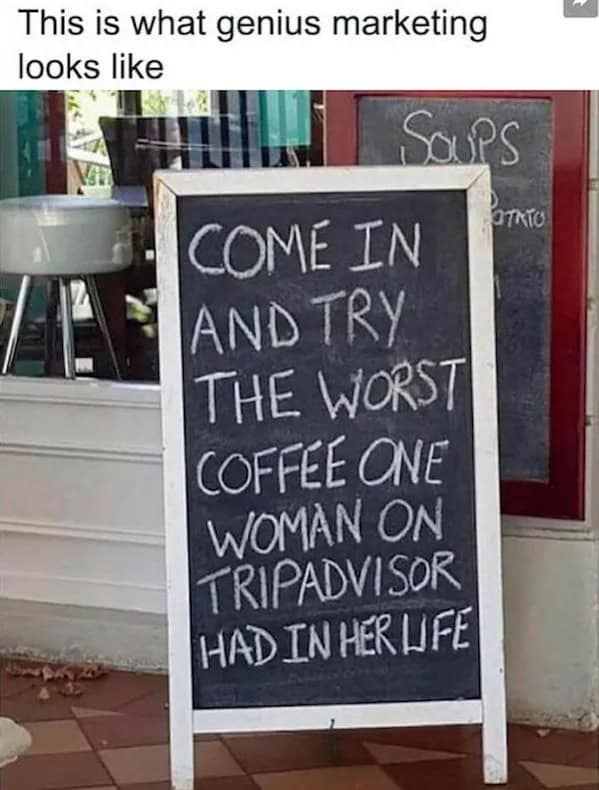 This is what genius marketing
looks like
SOUPS
POTATO
COME IN
AND TRY
THE WORST
COFFEE ONE
WOMAN ON
TRIPADVISOR
HAD IN HER LIFE